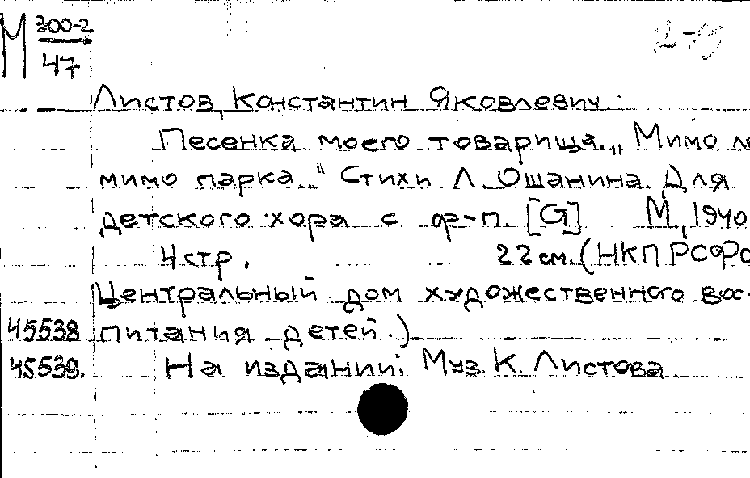 М 300-2
47
Листов, Константин Яковлевич.
Песенка моего товарища. „Мимо
мимо парка..." Стихи Л. Ошанина. Для
детского хора с ф-п. [G] М., 1940
4 стр. 22 см. (НКП РСФС
Центральный дом художественного вос-
45538 питания детей.)
45539. На издании: Муз. К. Листова